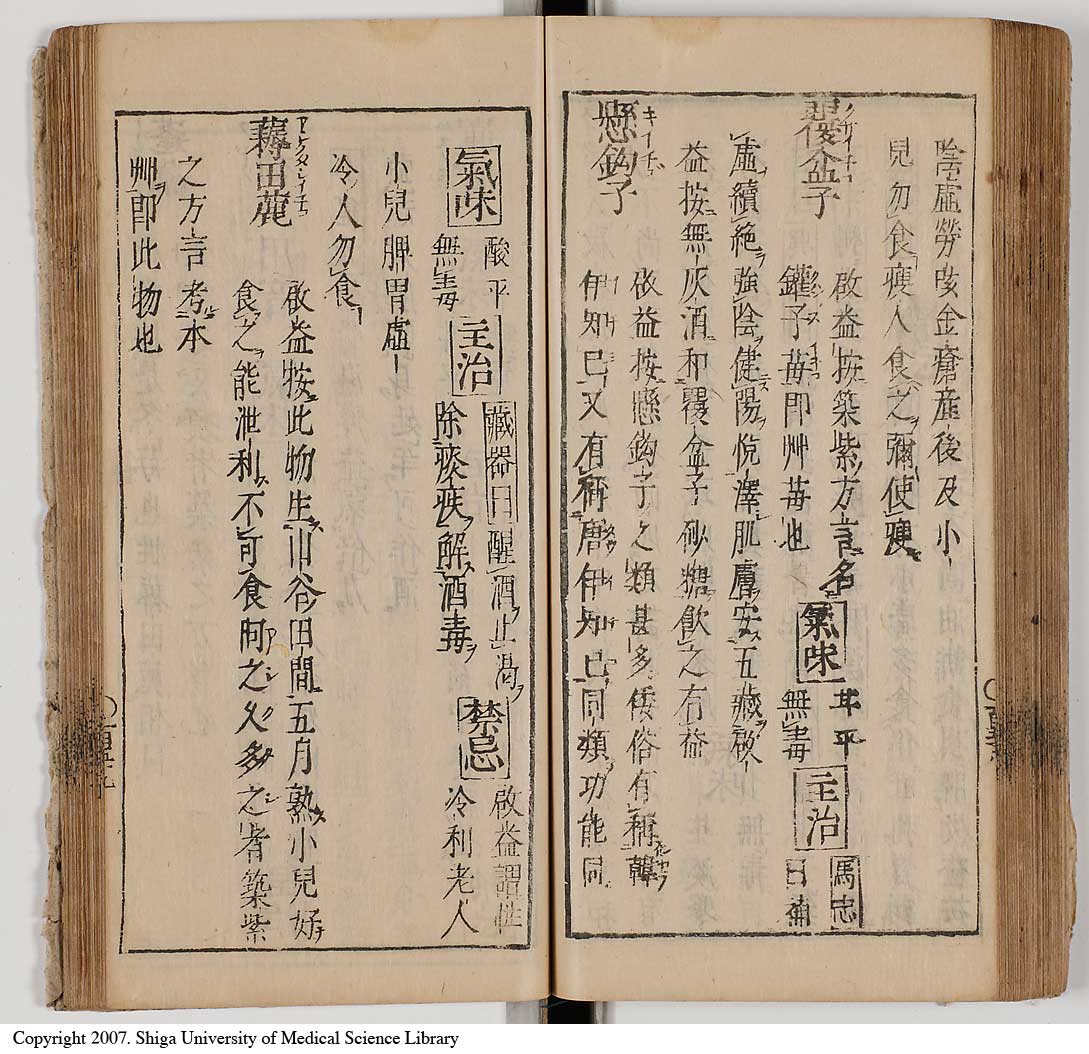 陰虛勞咳金瘡産後及小
兒勿食瘦人食之彌使瘦
覆盆子
啟益按築紫方言名
鑵子苺即艸苺也
氣味
甘平
無毒
主治
馬志
曰補
虛續絶強陰健陽悦澤肌膚安五藏啟
益按無灰酒和覆盆子砂糖飲之有益
懸鈎子
キイチゴ
啟益按懸鈎子之類甚多倭俗有稱韓
伊知巳又有稱唐伊知巳同類功能同
氣味
酸平
無毒
主治
藏器曰醒酒止渴
除痰唾解酒毒
禁忌
啟益謂性
冷利老人
小兒脾胃虛
冷人勿食
薅田藨
啟益按此物生山谷田間五月熟小兒好
食之能泄利不可食阿之久多之者築紫
之方言考本
艸即此物也
Copyright 2007. Shiga University of Medical Science Library